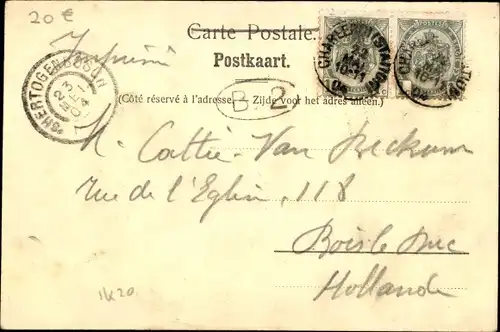 20€
Carte Postale.
Imprimé
Postkaart.
(Côté réservé à l'adresse. Zijde voor het adres alleen.)
B 2
'SHERTOGENBOSCH
23
4
CHARLEROI (STATION)
10-11
04
M. Cattie-Van Beckum
rue de l'Eglise, 118
Bois le Duc
Hollande
1k20